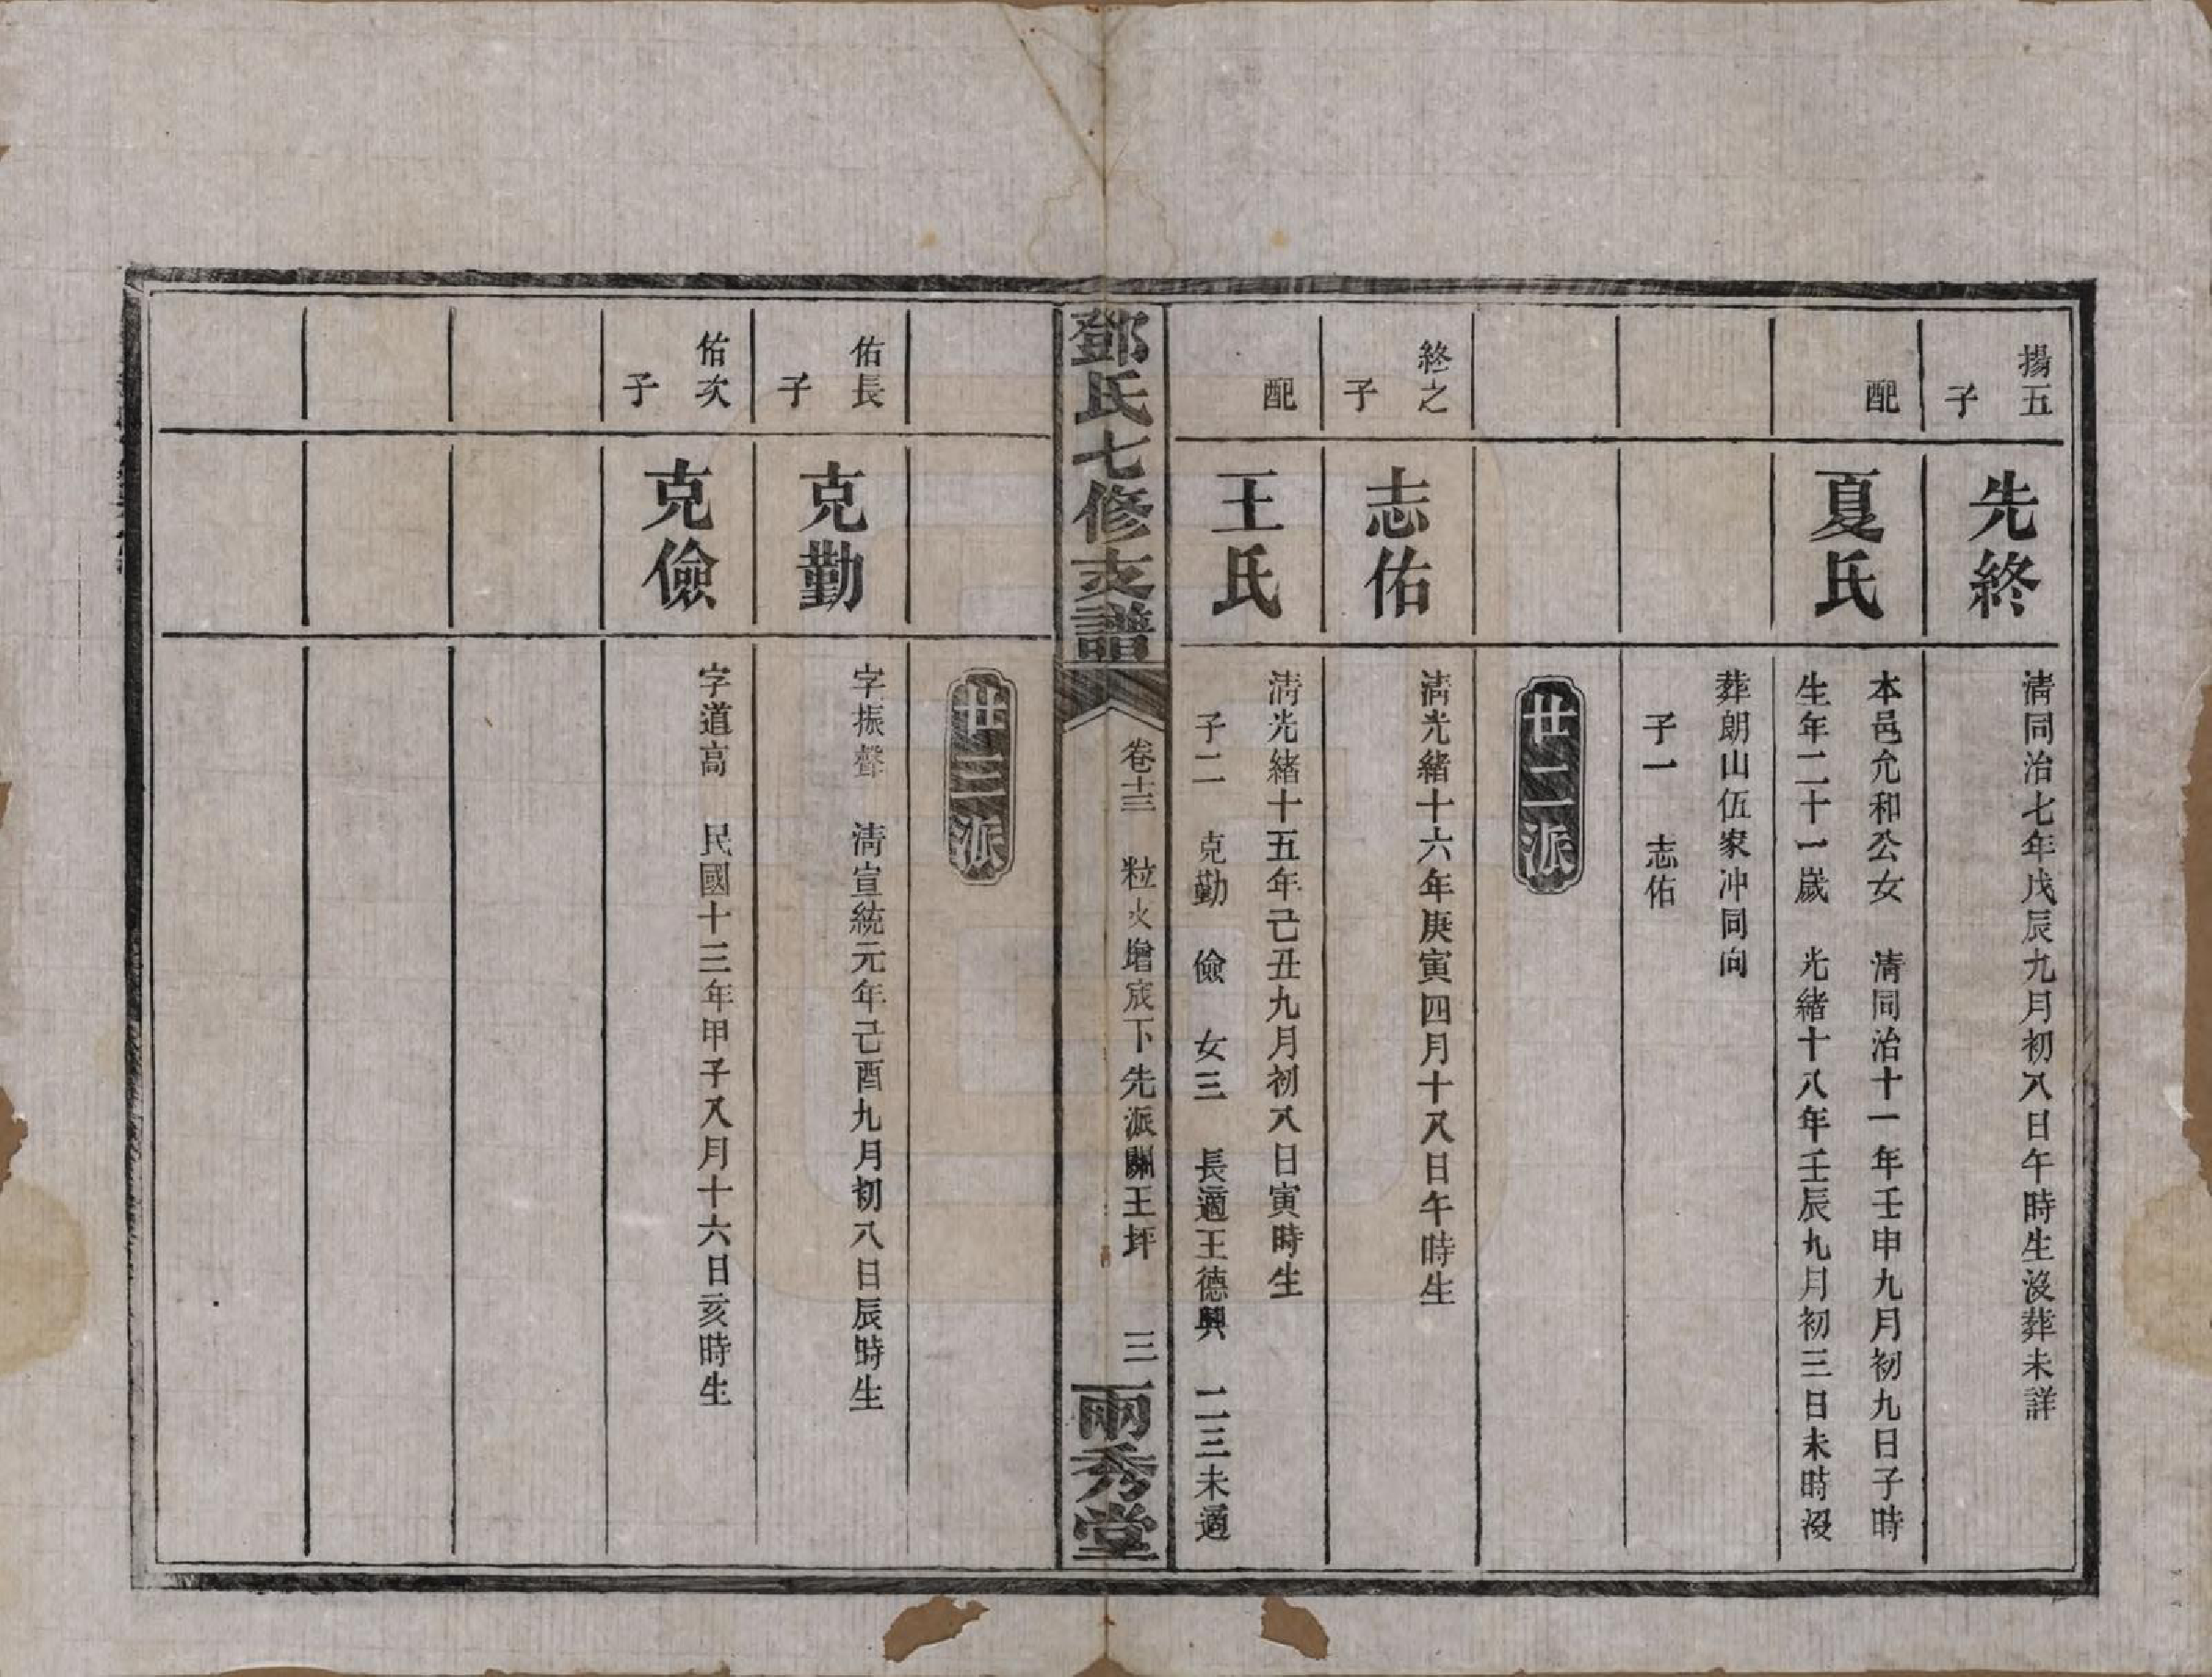 揚五
子
先終
清同治七年戊辰九月初八日午時生沒葬未詳
配
夏氏
本邑允和公女　清同治十一年壬申九月初九日子時
生年二十一歲　光緒十八年壬辰九月初三日未時沒
葬朗山伍家冲同向
子一　志佑
廿二派
終之
子
志佑
清光緒十六年庚寅四月十八日午時生
配
王氏
清光緒十五年己丑九月初八日寅時生
子二　克勤　儉　女三　長適王德興　二三未適
鄧氏七修支譜
卷十三　粒火增房下先派關王坪　三
兩秀堂
廿三派
佑長
子
克勤
字振聲　清宣統元年己酉九月初八日辰時生
佑次
子
克儉
字道高　民國十三年甲子八月十六日亥時生